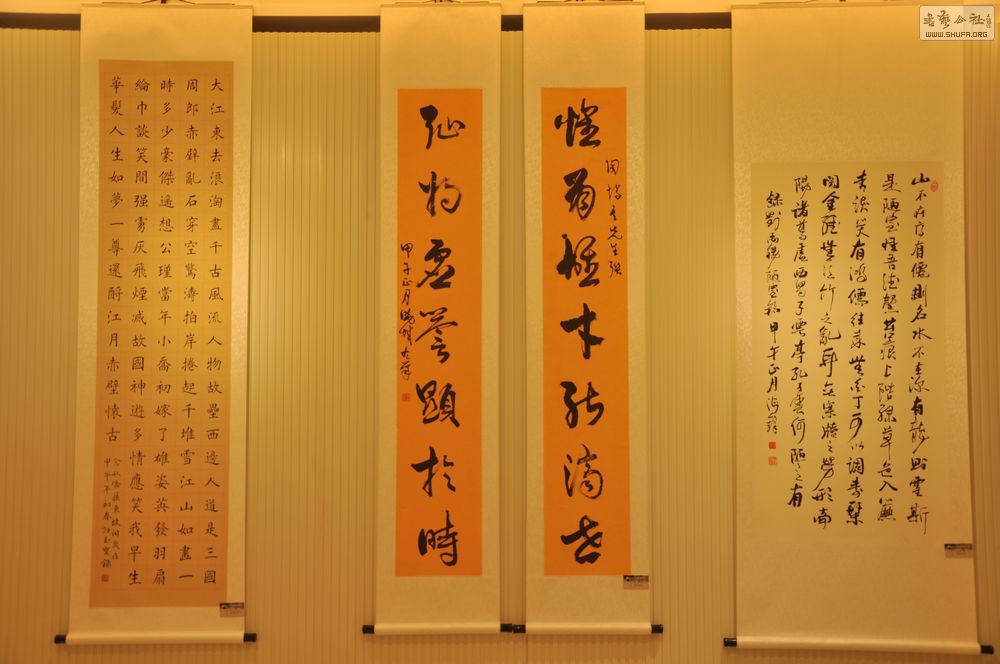 書藝公社
WWW.SHUFA.ORG
山不在高有僊則名水不在深有龍則靈斯
是陋室惟吾德馨苔痕上階綠草色入簾
青談笑有鴻儒往來無白丁可以調素琴
閱金經無絲竹之亂耳無案牘之勞形南
陽諸葛廬西蜀子雲亭孔子雲何陋之有
錄劉禹錫陋室銘甲午正月
木能濟世
先生
虛譽顯於時
正月
大江東去浪淘盡千古風流人物故壘西邊人道是三國
周郎赤壁亂石穿空驚濤拍岸捲起千堆雪江山如畫一
時多少豪傑遙想公瑾當年小喬初嫁了雄姿英發羽扇
綸巾談笑間强虜灰飛煙滅故國神遊多情應笑我早生
華髮人生如夢一尊還酹江月赤壁懷古
念奴嬌蘇東坡詞
甲午年初春汪玉寶錄